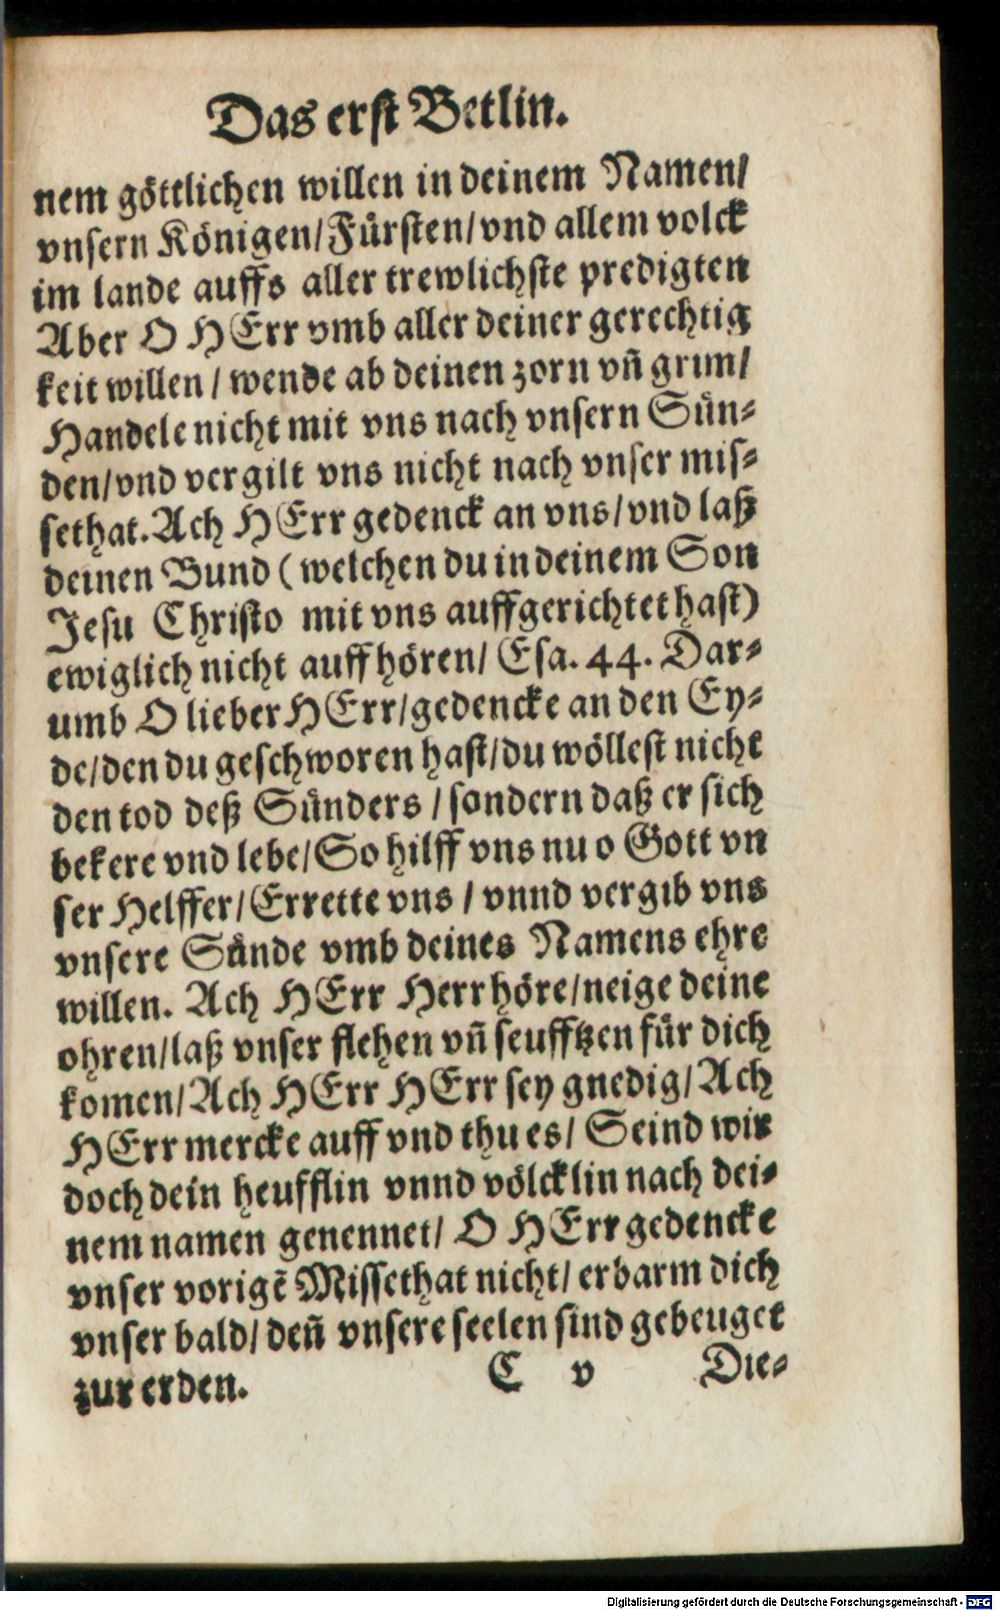 Das erst Betlin.
nem göttlichen willen in deinem Namen/
vnsern Königen/Fürsten/vnd allem volck
im lande auffs aller trewlichste predigten
Aber O HErr vmb aller deiner gerechtig
keit willen / wende ab deinen zorn vñ grim/
Handele nicht mit vns nach vnsern Sün-
den/vnd vergilt vns nicht nach vnser mis-
sethat. Ach HErr gedenck an vns/vnd laß
deinen Bund (welchen du in deinem Son
Jesu Christo mit vns auffgerichtet hast)
ewiglich nicht auffhören/ Esa. 44. Dar-
umb O lieber HErr/gedencke an den Ey-
de/den du geschworen hast/du wöllest nicht
den tod deß Sünders / sondern daß er sich
bekere vnd lebe/So hilff vns nu o Gott vn
ser Helffer/Errette vns / vnnd vergib vns
vnsere Sünde vmb deines Namens ehre
willen. Ach HErr Herr höre/neige deine
ohren/laß vnser flehen vñ seufftzen für dich
komen/Ach HErr HErr sey gnedig/Ach
HErr mercke auff vnd thu es/ Seind wir
doch dein heufflin vnnd völcklin nach dei-
nem namen genennet/ O HErr gedencke
vnser vorigē Missethat nicht/ erbarm dich
vnser bald/ deñ vnsere seelen sind gebeuget
zur erden. C v Die-
Digitalisierung gefördert durch die Deutsche Forschungsgemeinschaft - DFG